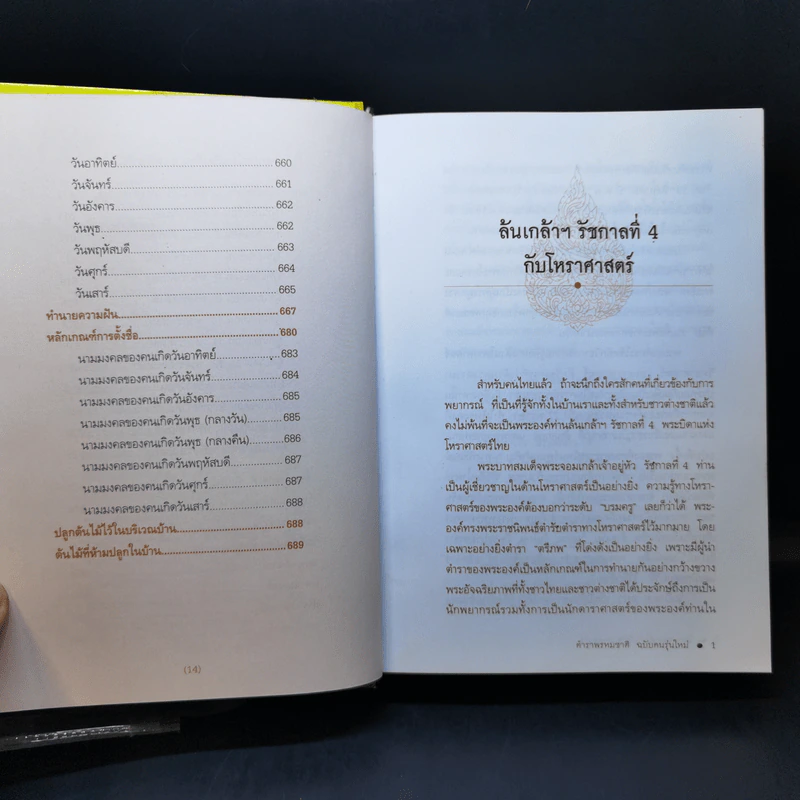 วันอาทิตย์.......................................................660
วันจันทร์.......................................................661
วันอังคาร.......................................................662
วันพุธ.......................................................662
วันพฤหัสบดี.......................................................663
วันศุกร์.......................................................664
วันเสาร์.......................................................665
ทำนายความฝัน.......................................................667
หลักเกณฑ์การตั้งชื่อ.......................................................680
นามมงคลของคนเกิดวันอาทิตย์...............................683
นามมงคลของคนเกิดวันจันทร์...............................684
นามมงคลของคนเกิดวันอังคาร...............................685
นามมงคลของคนเกิดวันพุธ (กลางวัน)...............................685
นามมงคลของคนเกิดวันพุธ (กลางคืน)...............................686
นามมงคลของคนเกิดวันพฤหัสบดี...............................687
นามมงคลของคนเกิดวันศุกร์...............................687
นามมงคลของคนเกิดวันเสาร์...............................688
ปลูกต้นไม้ไว้ในบริเวณบ้าน...............................688
ต้นไม้ที่ห้ามปลูกในบ้าน...............................689
(14)
ล้นเกล้าฯ รัชกาลที่ 4
กับโหราศาสตร์
สำหรับคนไทยแล้ว ถ้าจะนึกถึงใครสักคนที่เกี่ยวข้องกับการ
พยากรณ์ ที่เป็นที่รู้จักทั้งในบ้านเราและทั้งสำหรับชาวต่างชาติแล้ว
คงไม่พ้นที่จะเป็นพระองค์ท่านล้นเกล้าฯ รัชกาลที่ 4 พระบิดาแห่ง
โหราศาสตร์ไทย
พระบาทสมเด็จพระจอมเกล้าเจ้าอยู่หัว รัชกาลที่ 4 ท่าน
เป็นผู้เชี่ยวชาญในด้านโหราศาสตร์เป็นอย่างยิ่ง ความรู้ทางโหรา-
ศาสตร์ของพระองค์ต้องบอกว่าระดับ "บรมครู" เลยก็ว่าได้ พระ-
องค์ทรงพระราชนิพนธ์ตำรับตำราทางโหราศาสตร์ไว้มากมาย โดย
เฉพาะอย่างยิ่งตำรา "ตรีภพ" ที่โด่งดังเป็นอย่างยิ่ง เพราะมีผู้นำ
ตำราของพระองค์เป็นหลักเกณฑ์ในการทำนายกันอย่างกว้างขวาง
พระอัจฉริยภาพที่ทั้งชาวไทยและชาวต่างชาติได้ประจักษ์ถึงการเป็น
นักพยากรณ์รวมทั้งการเป็นนักดาราศาสตร์ของพระองค์ท่านใน
ตำราพรหมชาติ ฉบับคนรุ่นใหม่ ● 1